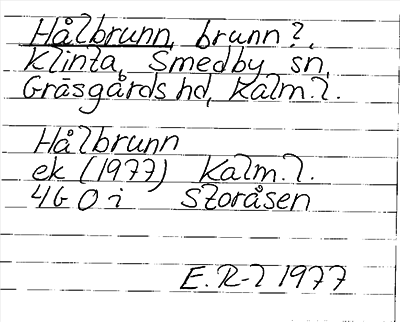 Hålbrunn, brunn?,
Klinta, Smedby sn,
Gräsgårds hd, Kalm.l.
Hålbrunn
ek (1977) Kalm.l.
4G 0 i Storåsen
E.R-l 1977